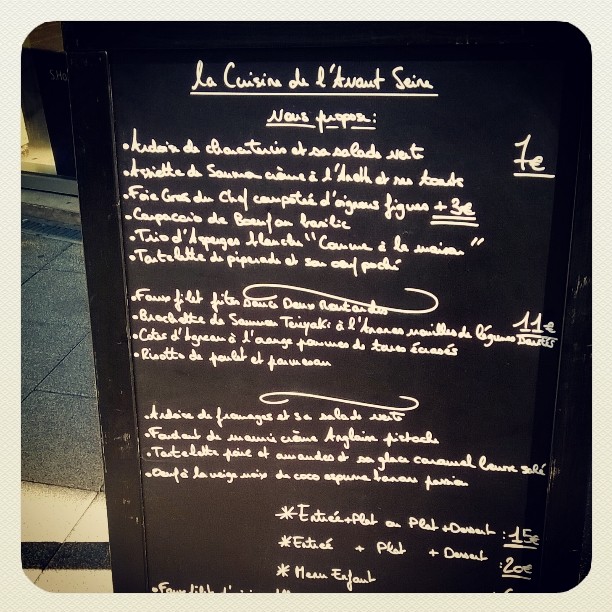 La Cuisine de l'Avant Seine
Nous propose:
•Ardoise de charcuteries et sa salade verte
7€
•Assiette de Saumon crème à l'Aneth et ses toasts
•Foie Gras du Chef compotée d'oignons figues +3€
•Carpaccio de Boeuf au basilic
•Trio d'Asperges blanche "Comme à la maison"
•Tartelette de piperade et son oeuf poché
•Faux filet frites Sauce Deux Moutardes
11€
•Brochette de Saumon Teriyaki à l'Ananas nouilles de légumes Sautés
•Cotes d'Agneau à l'orange pommes de terres écrasés
•Risotto de poulet et parmesan
•Ardoise de fromages et sa salade verte
•Fondant de mamie crème Anglaise pistache
•Tartelette poire et amandes et sa glace caramel beurre salé
•Oeuf à la neige noix de coco espuma banane passion
*Entrée+Plat ou Plat+Dessert : 15€
*Entrée + Plat + Dessert : 20€
*Menu Enfant
•Faux filet